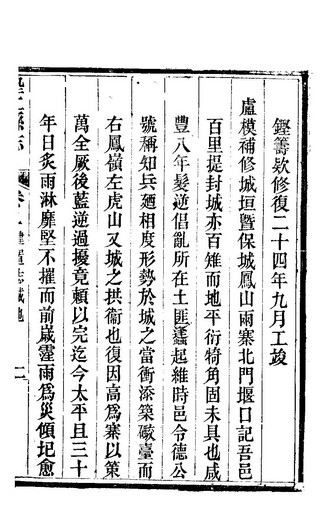 鏗籌欵修復二十四年九月工竣
盧模補修城垣暨保城鳳山兩寨北門堰口記吾邑
百里提封城亦百雉而地平衍犄角固未具也咸
豐八年髮逆倡亂所在土匪蠭起維時邑令德公
號稱知兵廼相度形勢於城之當衝添築礮臺而
右鳳嶺左虎山又城之拱衞也復因高爲寨以策
萬全厥後藍逆過擾竟賴以完迄今太平且三十
年日炙雨淋靡堅不摧而前歲霪雨爲災傾圮愈
卷二 建置志城池 二